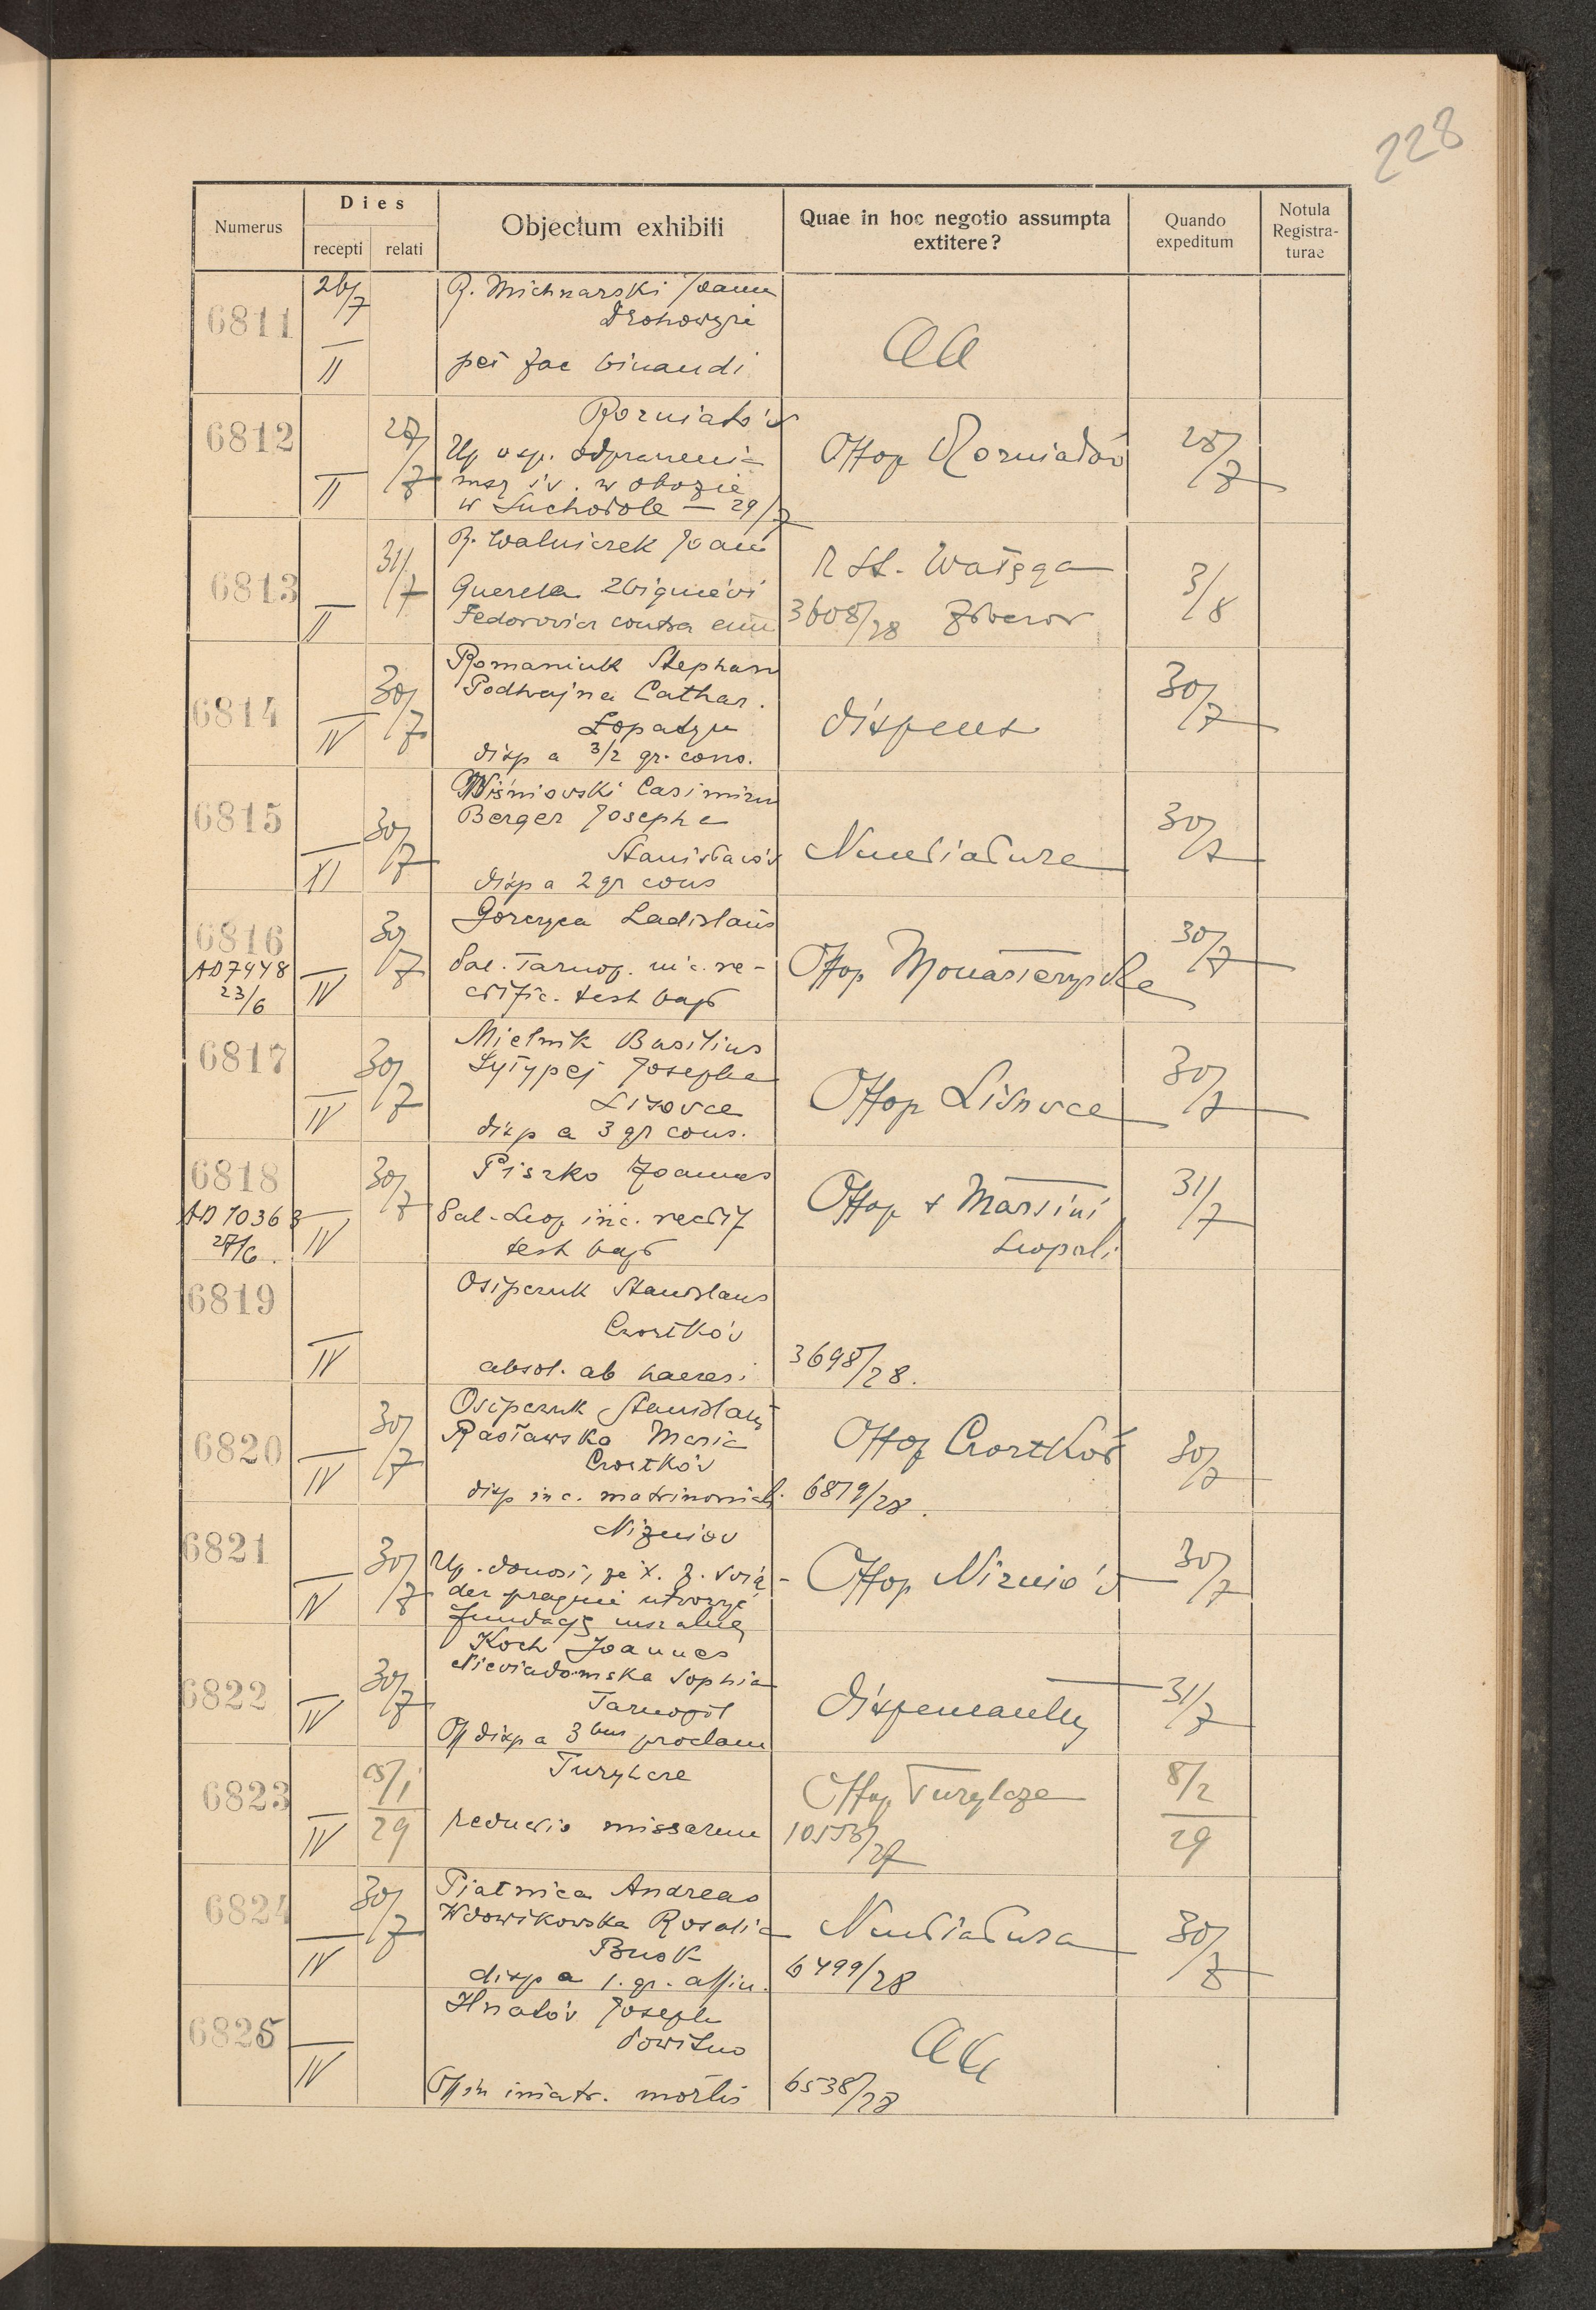 228
Numerus
Dies
recepti
relati
Objectum exhibiti
Quae in hoc negotio assumpta
extitere?
Quando
expeditum
Notula
Registra-
turae
6811
26/7
II
R. Michnarski Joann
pet fac binandi
aa
6812
II
27/7
Rozniatów
Up o sp. odprawienia
mszy św. w obozie
w Suchodole — 29/7
Offop Rozniatów
28/7
6813
II
31/7
R. Walniczek Joann
Querela Zbigniewi
Fedorovicz contra eum
R St. Wałęga
3608/28 Zborow
3/8
6814
IV
30/7
Romaniuk Stephan
Podhajna Cathar.
Łopatyn
disp a 3/2 gr. cons.
dispens
30/7
6815
XI
30/7
Wiśniowski Casimiru
Berger Josepha
Stanisławów
disp a 2 gr cons
Nuntiatura
30/7
6816
AD 7948
23/6
IV
30/7
Gorczyca Ladislaus
Pal. Tarnop. inc. re-
ctific. test bapt
Offop Monasterzyska
30/7
6817
IV
30/7
Mielnik Basilius
Łytypej Josepha
Lisovce
disp a 3 gr cons.
Offop Lisovce
30/7
6818
AD 10363
27/6.
IV
30/7
Piszko Joannes
Pal. Leop inc. rectif
test bapt
Offop S Martini
Leopoli
31/7
6819
IV
Osipczuk Stanislaus
Czortków
absol. ab haeresi
3698/28.
6820
IV
30/7
Osipczuk Stanislaus
Racławska Maria
Czortków
disp inc. matrimonial.
Offop Czortków
6819/28.
30/7
6821
IV
30/7
Niżniov
Up. donosi, że X. J. Svią-
der pragnie utworzyć
fundację mszalną
Offop Niżniów
30/7
6822
IV
30/7
Koch Joannes
Nieviadomska Sophia
Tarnopol
Off disp a 3bus proclam
dispensantur
31/7
6823
IV
25/1
29
Turylcze
reductio missarum
Offop Turylcze
10556/27
8/2
29
6824
IV
30/7
Piatnica Andreas
Wdowikowska Rosalia
Busk
disp a 1. gr. affin.
Nuntiatura
6499/28
30/7
6825
IV
Hnatów Joseph
Powitno
Off in matr. mortis
aa
6538/28